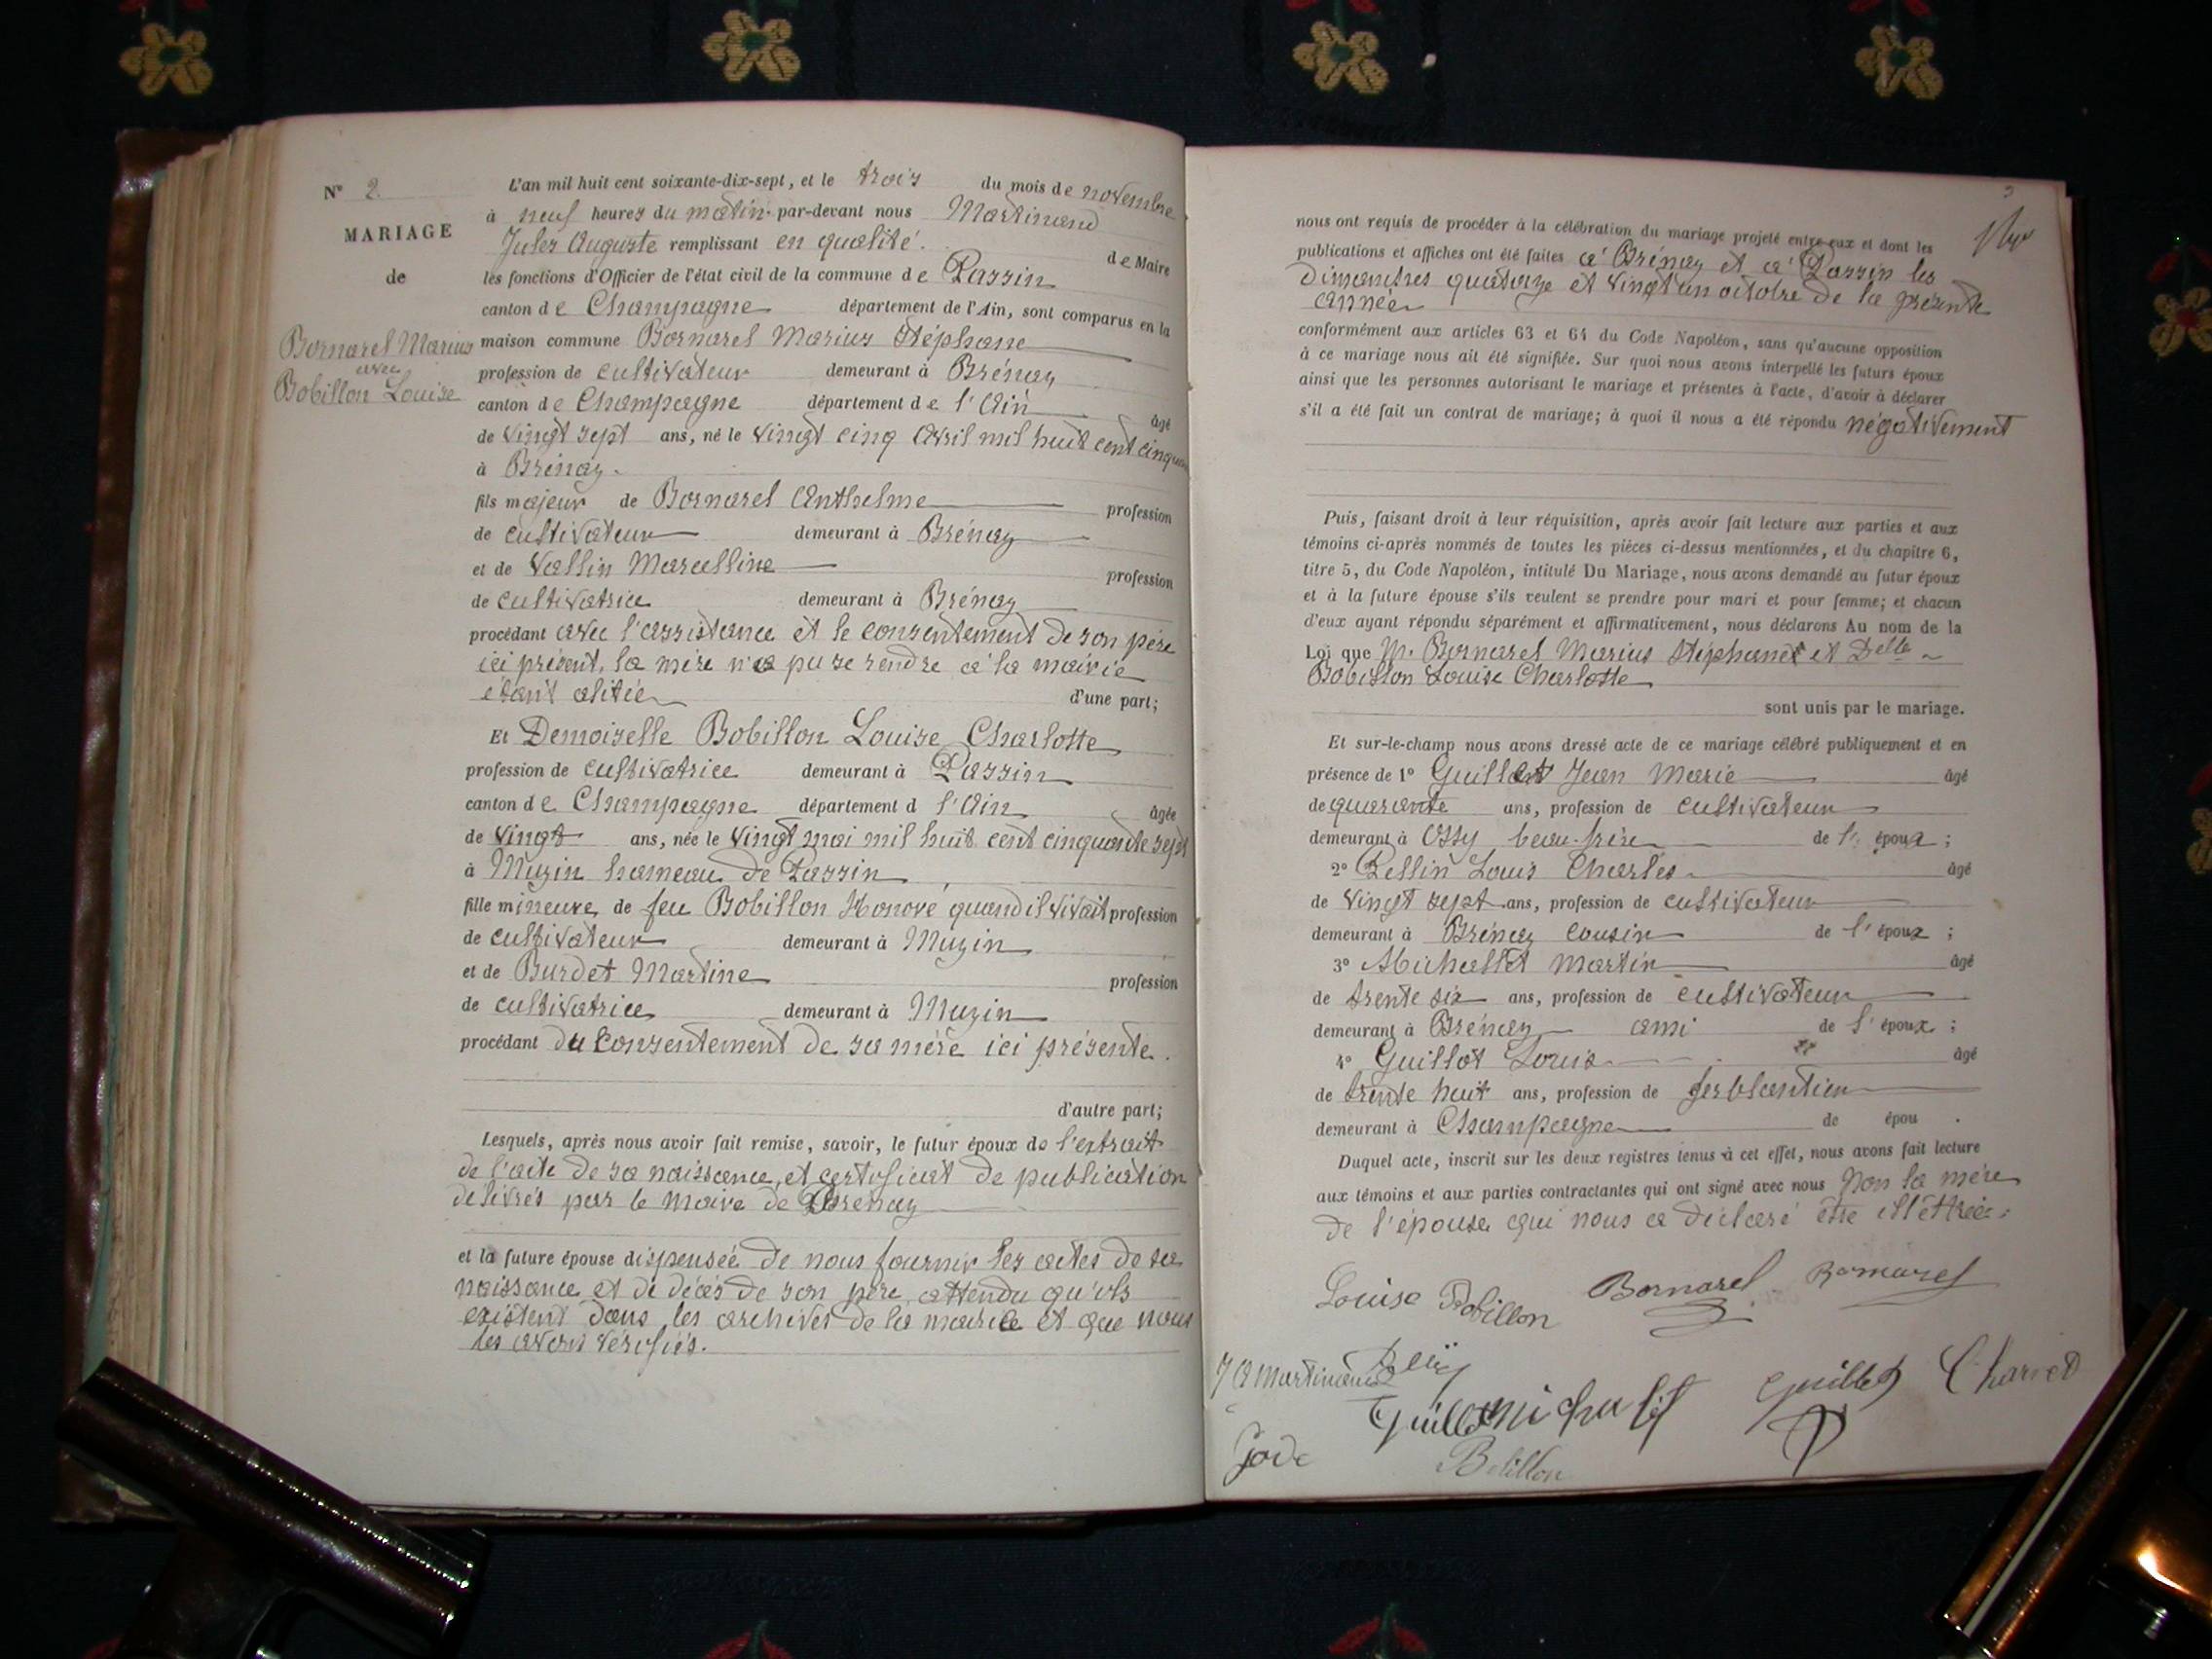 N° 2.
MARIAGE
de
Bornarel Marius
avec
Bobillon Louise
L'an mil huit cent soixante-dix-sept, et le trois du mois de novembre
à neuf heures du matin par-devant nous Martinand
Jules Auguste remplissant en qualité de Maire
les fonctions d'Officier de l'état civil de la commune de Passin
canton de Champagne département de l'Ain, sont comparus en la
maison commune Bornarel Marius Stéphane
profession de cultivateur demeurant à Brénaz
canton de Champagne département de l'Ain âgé
de vingt sept ans, né le vingt cinq Avril mil huit cent cinquante
à Brénaz.
fils majeur de Bornarel Anthelme profession
de cultivateur demeurant à Brénaz
et de Vallin Marcelline profession
de cultivatrice demeurant à Brénaz
procédant avec l'assistance et le consentement de son père
ici présent, la mère n'a pu se rendre à la mairie
étant alitée d'une part;
Et Demoiselle Bobillon Louise Charlotte
profession de cultivatrice demeurant à Passin
canton de Champagne département d l'Ain âgée
de vingt ans, née le vingt mai mil huit cent cinquante sept
à Muzin hameau de Passin
fille mineure de feu Bobillon Honoré quand il vivait profession
de cultivateur demeurant à Muzin
et de Burdet Martine profession
de cultivatrice demeurant à Muzin
procédant du consentement de sa mère ici présente.
d'autre part;
Lesquels, après nous avoir fait remise, savoir, le futur époux de l'extrait
de l'acte de sa naissance, et certificat de publication
délivrés par le maire de Brénaz
et la future épouse dispensée de nous fournir les actes de sa
naissance et de décès de son père, attendu qu'ils
existent dans les archives de la mairie et que nous
les avons vérifiés.
3
nous ont requis de procéder à la célébration du mariage projeté entre eux et dont les
publications et affiches ont été faites à Brénaz et à Passin les
dimanches quatorze et vingt un octobre de la présente
année
conformément aux articles 63 et 64 du Code Napoléon, sans qu'aucune opposition
à ce mariage nous ait été signifiée. Sur quoi nous avons interpellé les futurs époux
ainsi que les personnes autorisant le mariage et présentes à l'acte, d'avoir à déclarer
s'il a été fait un contrat de mariage; à quoi il nous a été répondu négativement
Puis, faisant droit à leur réquisition, après avoir fait lecture aux parties et aux
témoins ci-après nommés de toutes les pièces ci-dessus mentionnées, et du chapitre 6,
titre 5, du Code Napoléon, intitulé Du Mariage, nous avons demandé au futur époux
et à la future épouse s'ils veulent se prendre pour mari et pour femme; et chacun
d'eux ayant répondu séparément et affirmativement, nous déclarons Au nom de la
Loi que M. Bornarel Marius Stéphane et Delle
Bobillon Louise Charlotte
sont unis par le mariage.
Et sur-le-champ nous avons dressé acte de ce mariage célébré publiquement et en
présence de 1° Guillot Jean Marie âgé
de quarante ans, profession de cultivateur
demeurant à Ossy beau-frère de l' époux ;
2° Pellin Louis Charles âgé
de vingt sept ans, profession de cultivateur
demeurant à Brénaz cousin de l' époux ;
3° Michallet Martin âgé
de trente six ans, profession de cultivateur
demeurant à Brénaz ami de l' époux ;
4° Guillot Louis âgé
de trente huit ans, profession de ferblantier
demeurant à Champagne de épou .
Duquel acte, inscrit sur les deux registres tenus à cet effet, nous avons fait lecture
aux témoins et aux parties contractantes qui ont signé avec nous Non la mère
de l'épouse qui nous a déclaré être illettrée.
Louise Bobillon Bornarel Bornarel
J A Martinand
Guillot Michallet Guillot Charvet
Jode Bobillon